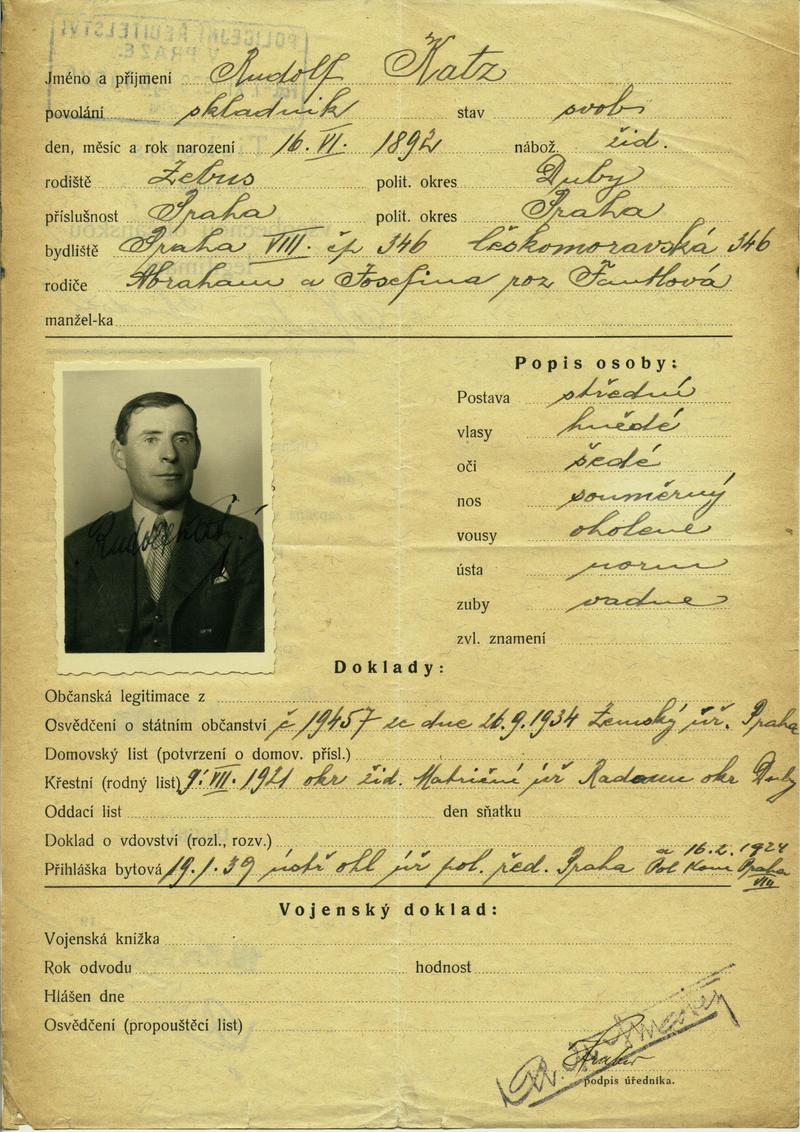 POLICEJNÍ ŘEDITELSTVÍ
V PRAZE.
Jméno a příjmení Rudolf Katz
povolání skladník stav svob.
den, měsíc a rok narození 16. VI. 1892 nábož. žid.
rodiště Žebus polit. okres Duby
příslušnost Praha polit. okres Praha
bydliště Praha VIII. čp 346 Českomoravská 346
rodiče Abraham a Josefina roz Fantlová
manžel-ka
Popis osoby:
Postava střední
vlasy hnědé
oči šedé
nos souměrný
vousy oholené
ústa norm
zuby vadné
zvl. znamení
Rudolf Katz
Doklady:
Občanská legitimace z
Osvědčení o státním občanství č 19457 ze dne 26.9.1934 Zemský úř. Praha
Domovský list (potvrzení o domov. přísl.)
Křestní (rodný list) 9. VII. 1921 okr žid. Matriční úř Radaun okr Duby
Oddací list den sňatku
Doklad o vdovství (rozl., rozv.)
a 16.2.1924
Přihláška bytová 19.1.39 ústř ohl úř pol. řed. Praha Pol Kom Praha VIII
Vojenský doklad:
Vojenská knížka
Rok odvodu hodnost
Hlášen dne
Osvědčení (propouštěcí list)
podpis úředníka.